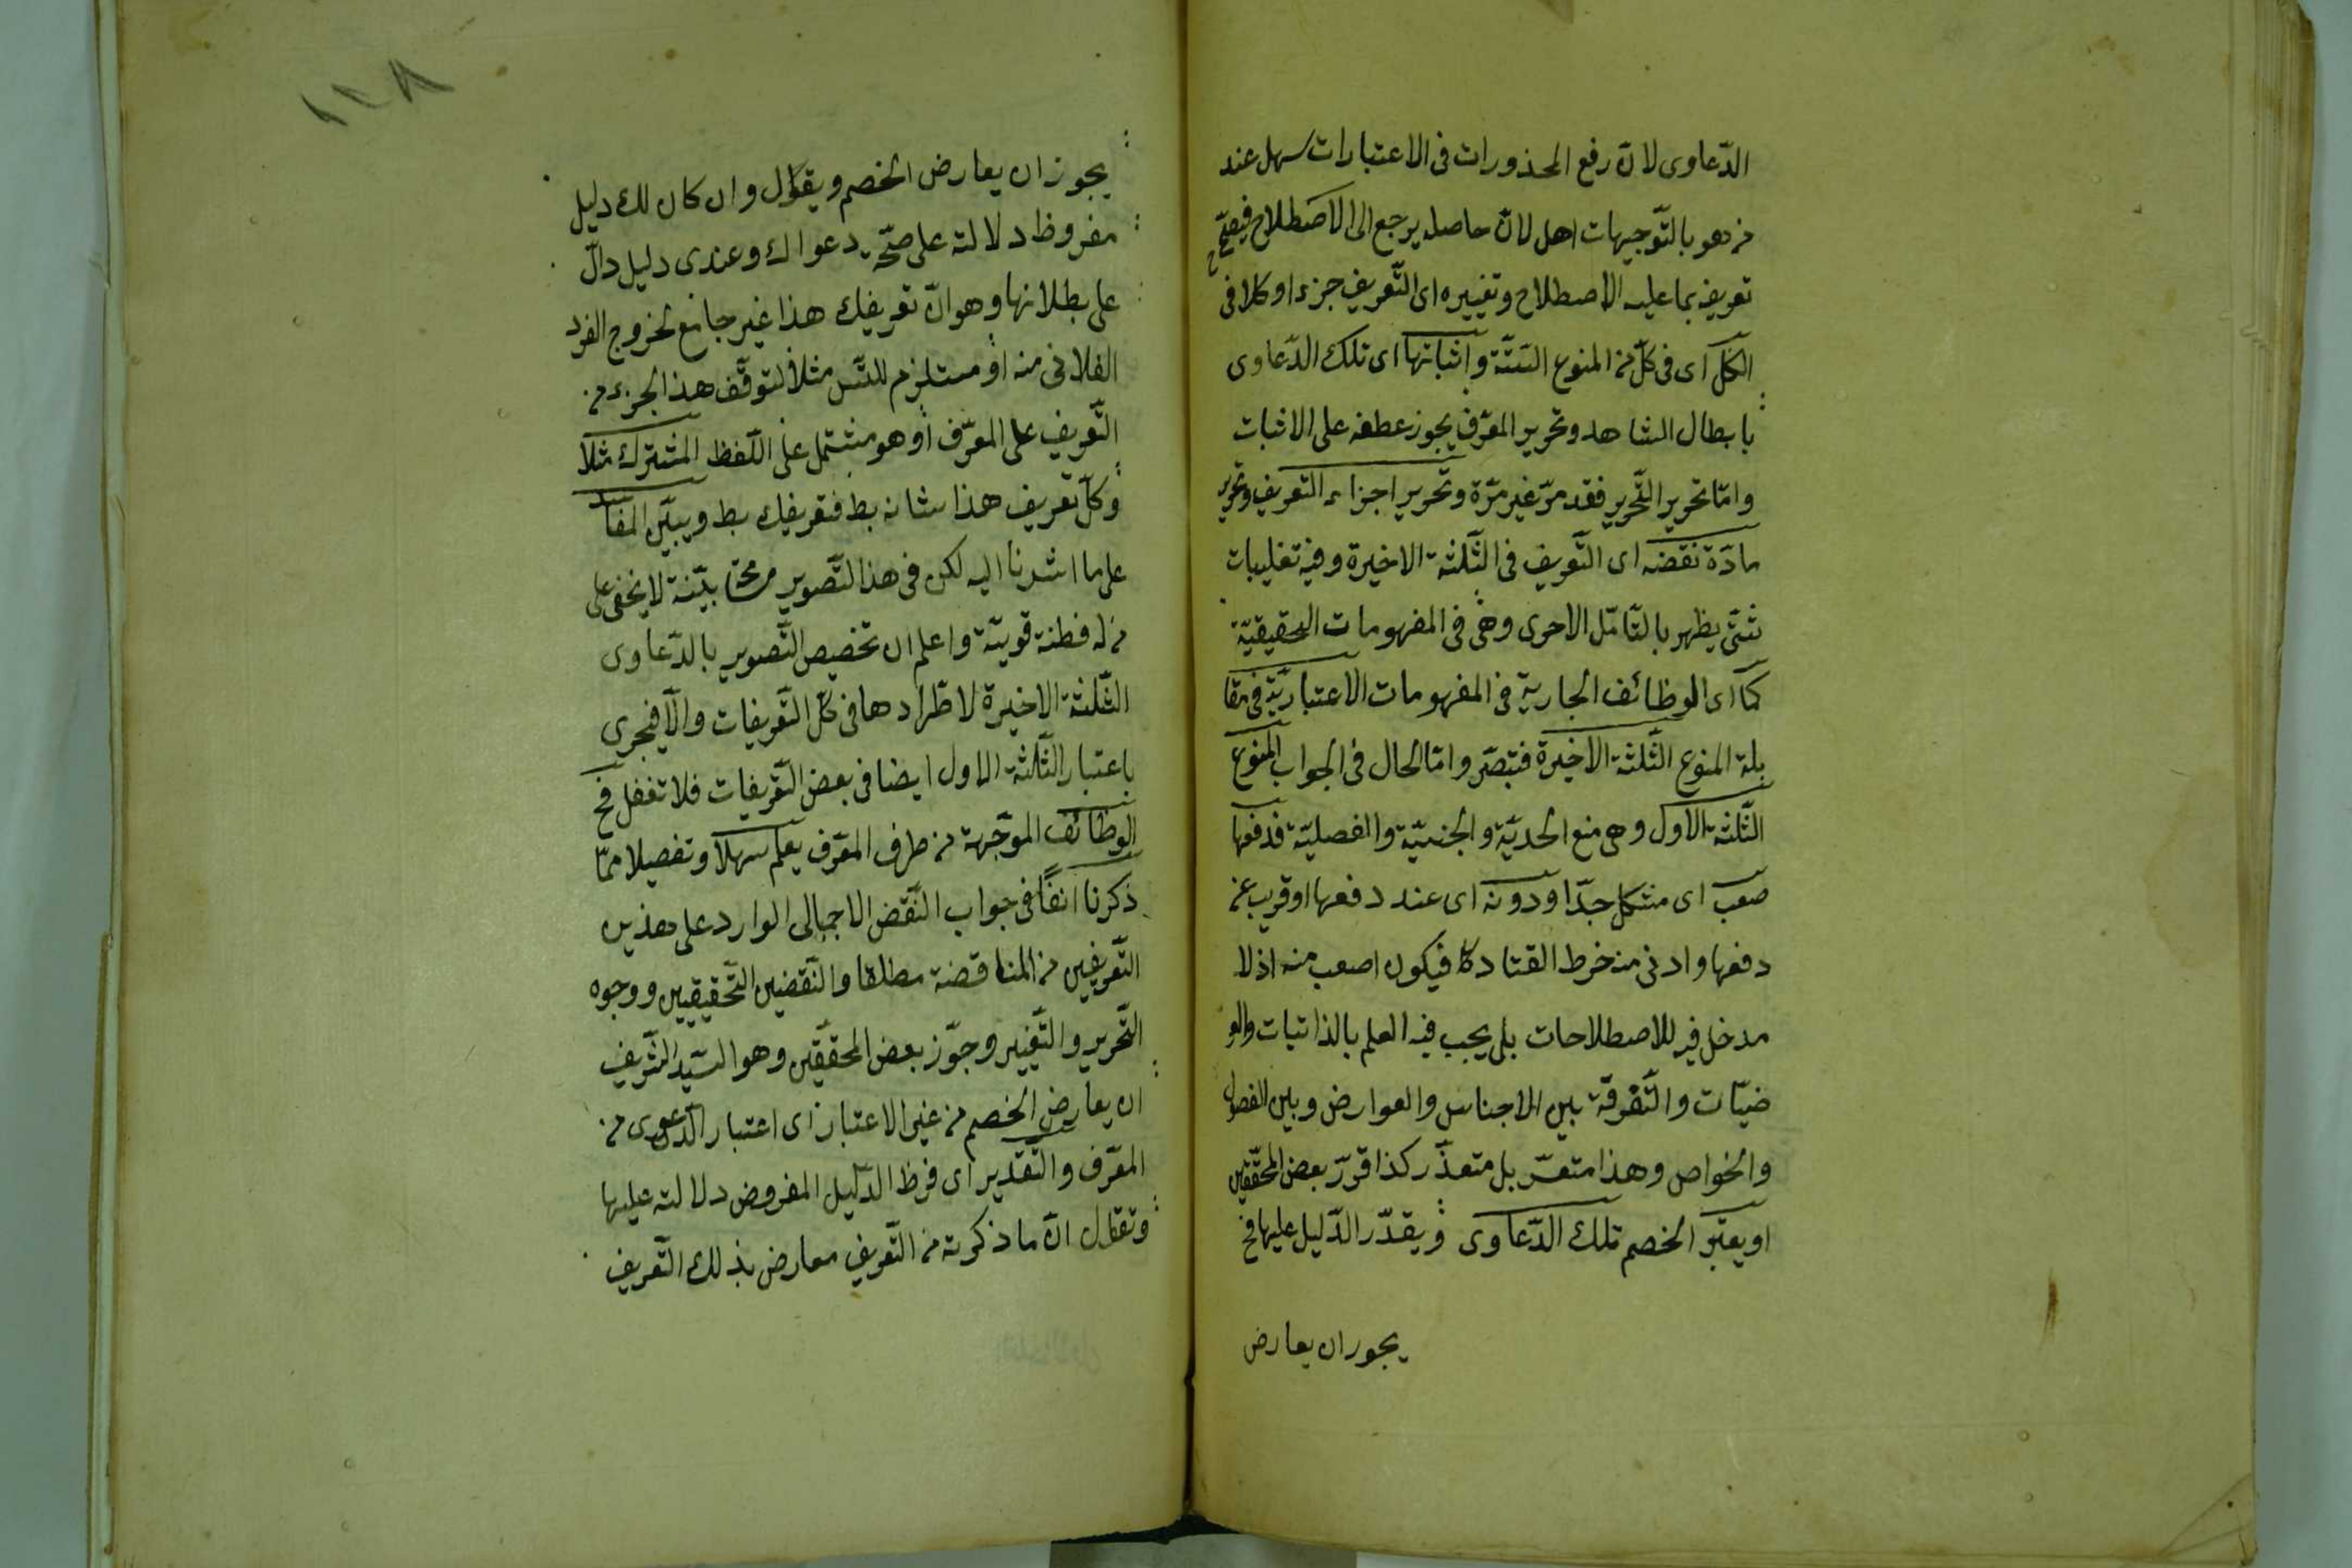 الدّعاوى لانّ رفع المحذورات فى الاعتبارات سهل عند
من هو بالتّوجيهات اهل لانّ حاصله يرجع الى الاصطلاح فيصحّ
تعريفه بما عليه الاصطلاح وتغييره اى التّعريف جزء او كلا فى
الكلّ اى فى كلّ من المنوع السّتّة واثباتها اى تلك الدّعاوى
بابطال الشاهد وتحرير المعرّف يجوز عطفه على الاثبات
وامّا تحرير التّحرير فقد مرّ غير مرّة وتحرير اجزاء التعريف وتحرير
مادّة نقضه اى التّعريف فى الثّلثة الاخيرة وفيه تغليبات
شتّى يظهر بالتّامّل الاحرى وفى المفهومات الحقيقيّة
كما اى الوظائف الجارية فى المفهومات الاعتباريّة فى مقا
بلة المنوع الثّلثة الاخيرة فتبصّر وامّا الحال فى الجواب المنوع
الثّلثة الاول وهى منع الحديّة والجنسيّة والفصليّة فدفعها
صعب اى مشكل جدّا ودونه اى عند دفعها او قريب من
دفعها وادنى منه خرط القتاد فيكون اصعب منه اذ لا
مدخل فيه للاصطلاحات بل يجب فيه العلم بالذاتيات والعر
ضيّات والتّفرقة بين الاجناس والعوارض وبين الفصول
والخواص وهذا متعسّر بل متعذّر كذا قرّر بعض المحقّقين
او يعتبر الخصم تلك الدّعاوى ويقدّر الدّليل عليها فح
يجوز ان يعارض
١٢٨
يجوز ان يعارض الخصم ويقول وان كان لك دليل
مفروظ دلالته على صحّة دعواك وعندى دليل دالّ
على بطلانها وهو انّ تعريفك هذا غير جامع لخروج الفرد
الفلانى منه او مستلزم للتّس مثلا لتوقّف هذا الجزء من
التّعريف على المعرّف او هو مشتمل على اللّفظ المشترك مثلا
وكلّ تعريف هذا شانه بط فتعريفك بط ويبيّن المفاسد
على ما اشرنا اليه لكن فى هذا التّصوير بيّنة لا يخفى على
من له فطنة قويّة واعلم ان تخصيص التّصوير بالدّعاوى
الثّلثة الاخيرة لاطّرادها فى كلّ التّعريفات والّا فيجرى
باعتبار الثّلثة الاول ايضا فى بعض التّعريفات فلا تغفل فح
الوظائف الموجّهة من طرف المعرّف يعلم سهلا وتفصيلا ممّا
ذكرنا انفًا فى جواب النّقض الاجمالى الوارد على هذين
التّعريفين من المناقضة مطلقا والنّقضين التّحقيقيين ووجوه
التّحرير والتّغيير وجوّز بعض المحقّقين وهو السّيّد الشّريف
ان يعارض الخصم من غير الاعتبار اى اعتبار الدّعوى من
المعرّف والتّقدير اى فرظ الدّليل المفروض دلالته عليها
وتقال انّ ما ذكرته من التّعريف معارض بذلك التّعريف